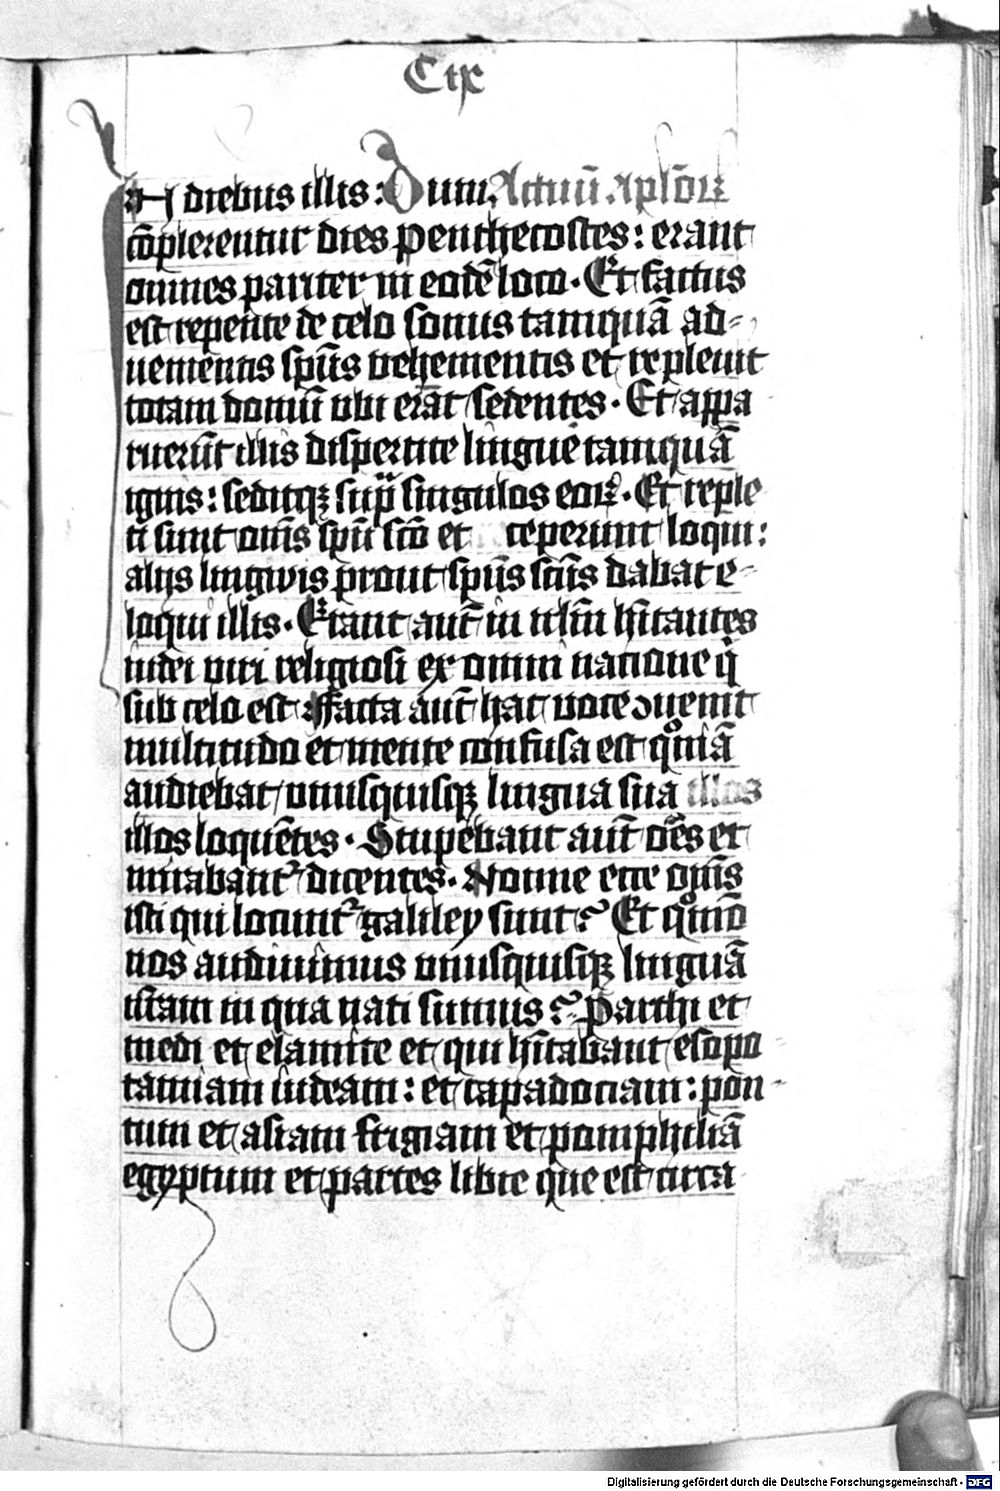 C ix
IN diebus illis : Dum Actuū Aplōꝝ
cōplerentur dies penthecostes : erant
omnes pariter in eodē loco · Et factus
est repente de celo sonus tamquā ad-
uenientis spūs vehementis et repleuit
totam domū vbi erāt sedentes · Et appa
ruerūt illis dispertite lingue tamquā
ignis : seditqꝫ sup̄ singulos eoꝝ · Et reple
ti sunt om̄s spū scō et ceperunt loqui :
alijs lingwis prout spūs scūs dabat e-
loqui illis · Erant aut̄ in irlm̄ hītantes
iudei viri religiosi ex omni nacione q̄
sub celo est : Ffacta aut̄ hac voce ꝯuenit
multitudo et mente confusa est qͦniā
audiebat vnusquisqꝫ lingua sua illos
illos loquētes · Stupebant aut̄ oēs et
mirabantᷣ dicentes · Nonne ecce om̄s
isti qui locuntᷣ galiley sunt ? Et qͦmō
nos audiuimus vnusquisqꝫ linguā
istam in qua nati sumus ? Parthi et
medi et elamite et qui hītabant esopo
tamiam iudeam : et capadociam : pon-
tum et asiam frigiam et pomphiliā
egyptum et partes libie que est circa
Digitalisierung gefördert durch die Deutsche Forschungsgemeinschaft - DFG